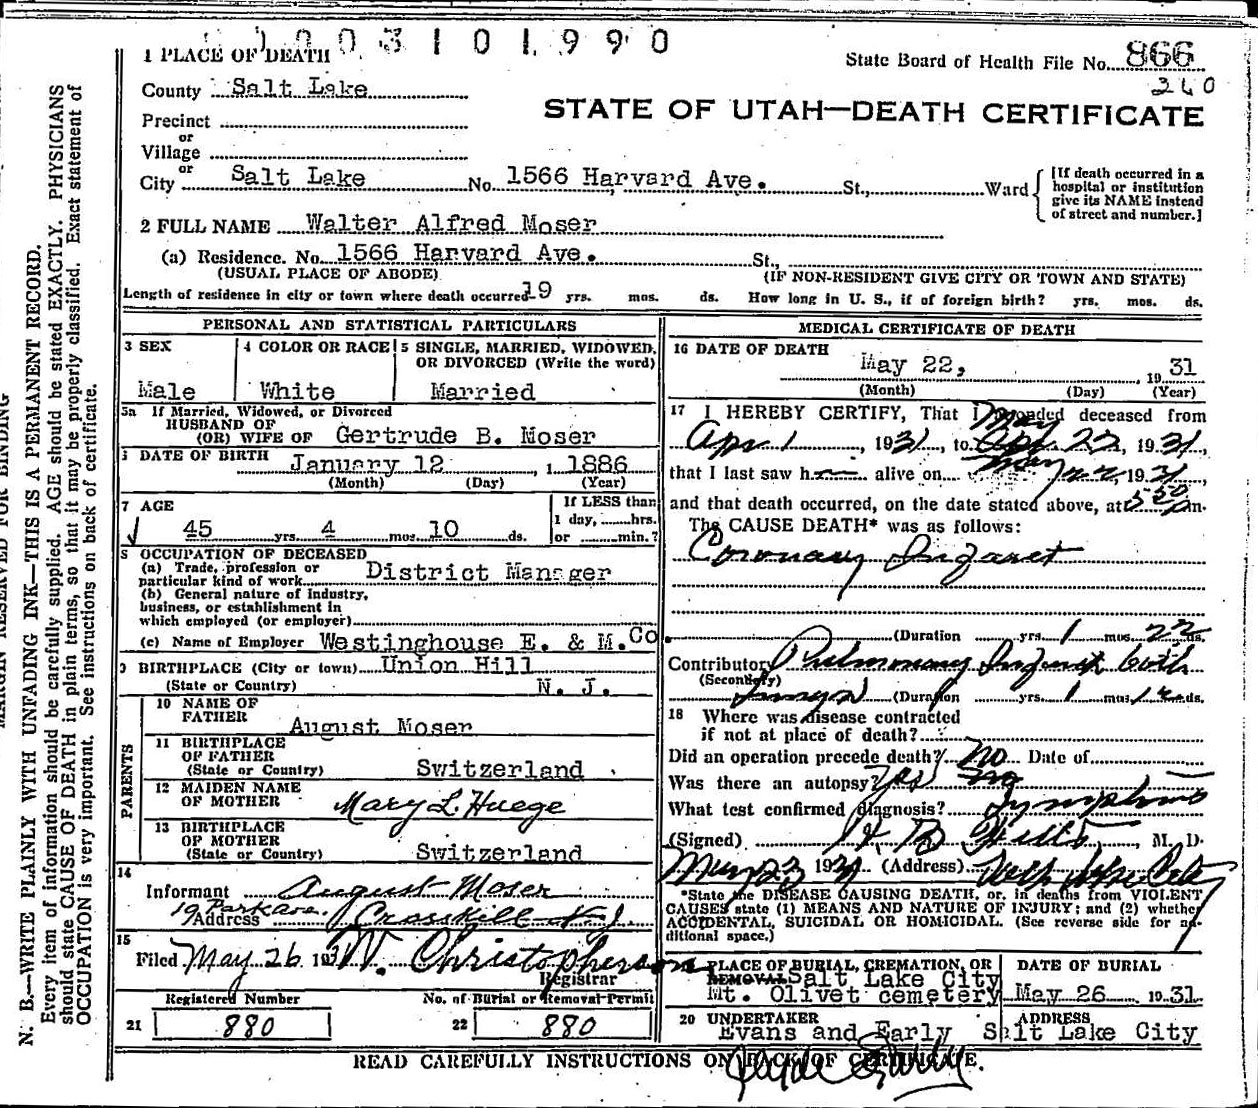 1003101990
1 PLACE OF DEATH
State Board of Health File No. 866
360
County Salt Lake
STATE OF UTAH—DEATH CERTIFICATE
Precinct
or
Village
or
City Salt Lake No. 1566 Harvard Ave. St., Ward
[If death occurred in a
hospital or institution
give its NAME instead
of street and number.]
2 FULL NAME Walter Alfred Moser
(a) Residence. No. 1566 Harvard Ave. St.,
(USUAL PLACE OF ABODE) (IF NON-RESIDENT GIVE CITY OR TOWN AND STATE)
Length of residence in city or town where death occurred 19 yrs. mos. ds. How long in U. S., if of foreign birth? yrs. mos. ds.
PERSONAL AND STATISTICAL PARTICULARS
3 SEX
Male
4 COLOR OR RACE
White
5 SINGLE, MARRIED, WIDOWED,
OR DIVORCED (Write the word)
Married
5a If Married, Widowed, or Divorced
HUSBAND OF
(OR) WIFE OF Gertrude B. Moser
DATE OF BIRTH January 12, 1886
(Month) (Day) (Year)
7 AGE
45 yrs. 4 mos. 10 ds.
If LESS than
1 day, hrs.
or min.?
8 OCCUPATION OF DECEASED
(a) Trade, profession or
particular kind of work District Manager
(b) General nature of industry,
business, or establishment in
which employed (or employer)
(c) Name of Employer Westinghouse E. & M. Co.
9 BIRTHPLACE (City or town) Union Hill
(State or Country) N. J.
PARENTS
10 NAME OF
FATHER August Moser
11 BIRTHPLACE
OF FATHER
(State or Country) Switzerland
12 MAIDEN NAME
OF MOTHER Mary L. Huege
13 BIRTHPLACE
OF MOTHER
(State or Country) Switzerland
14
Informant August Moser
19 Park Ave.
Address Cresskill N J
15
Filed May 26 193 W. Christopherson
Registrar
Registered Number
21 880
No. of Burial or Removal Permit
22 880
MEDICAL CERTIFICATE OF DEATH
16 DATE OF DEATH
May 22, 19 31
(Month) (Day) (Year)
17 I HEREBY CERTIFY, That I attended deceased from
May
Apr 1, 1931, to Apr 22, 1931,
that I last saw h alive on May 22, 1931,
and that death occurred, on the date stated above, at 5 50 pm.
The CAUSE DEATH* was as follows:
Coronary Infarct
(Duration yrs. 1 mos. 22 ds.
Contributory Pulmonary Infarct both
(Secondary)
lungs (Duration yrs. 1 mos. 12 ds.
18 Where was disease contracted
if not at place of death?
Did an operation precede death? no Date of
Was there an autopsy? yes no
What test confirmed diagnosis? Symptoms
(Signed) M. D.
May 23 193 (Address) Salt Lake City
*State the DISEASE CAUSING DEATH, or, in deaths from VIOLENT
CAUSES state (1) MEANS AND NATURE OF INJURY; and (2) whether
ACCIDENTAL, SUICIDAL OR HOMICIDAL. (See reverse side for ad-
ditional space.)
PLACE OF BURIAL, CREMATION, OR
REMOVAL Salt Lake City
Mt. Olivet cemetery
DATE OF BURIAL
May 26 1931
20 UNDERTAKER
Evans and Early
ADDRESS
Salt Lake City
READ CAREFULLY INSTRUCTIONS ON BACK OF CERTIFICATE.
Clyde Early
MARGIN RESERVED FOR BINDING
N. B.—WRITE PLAINLY WITH UNFADING INK—THIS IS A PERMANENT RECORD.
Every item of information should be carefully supplied. AGE should be stated EXACTLY. PHYSICIANS
should state CAUSE OF DEATH in plain terms, so that it may be properly classified. Exact statement of
OCCUPATION is very important. See instructions on back of certificate.